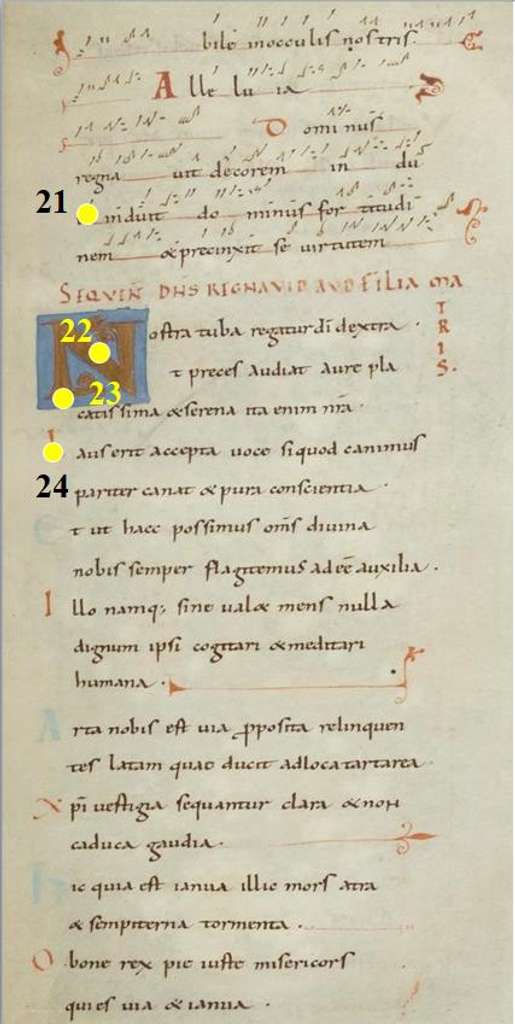 bile inocculis nostris.
Alleluia
Dominus
regnavit decorem indu
21
induit dominus fortitudi
nem & precinxit se virtutem
SEQUEN DNS REGNAVIT AUT FILIA MA
TRIS.
22
Nostra tuba regatur di dextra
t preces audiat aure pla
23
catissima & serena ita enim nra
24
aus erit accepta uoce si quod canimus
pariter canat & pura conscientia
t ut haec possimus oms diuina
nobis semper flagitemus adee auxilia.
Illo namq; sine ual& mens nulla
dignum ipsi cogitari & meditari
humana.
Arta nobis est uia pposita relinquen
tes latam quae ducit adloca tartarea.
Xpi uestigia sequantur clara & non
caduca gaudia.
hic quia est ianua illic mors atra
& sempiterna tormenta.
O bone rex pie iuste misericors
qui es uia & ianua.